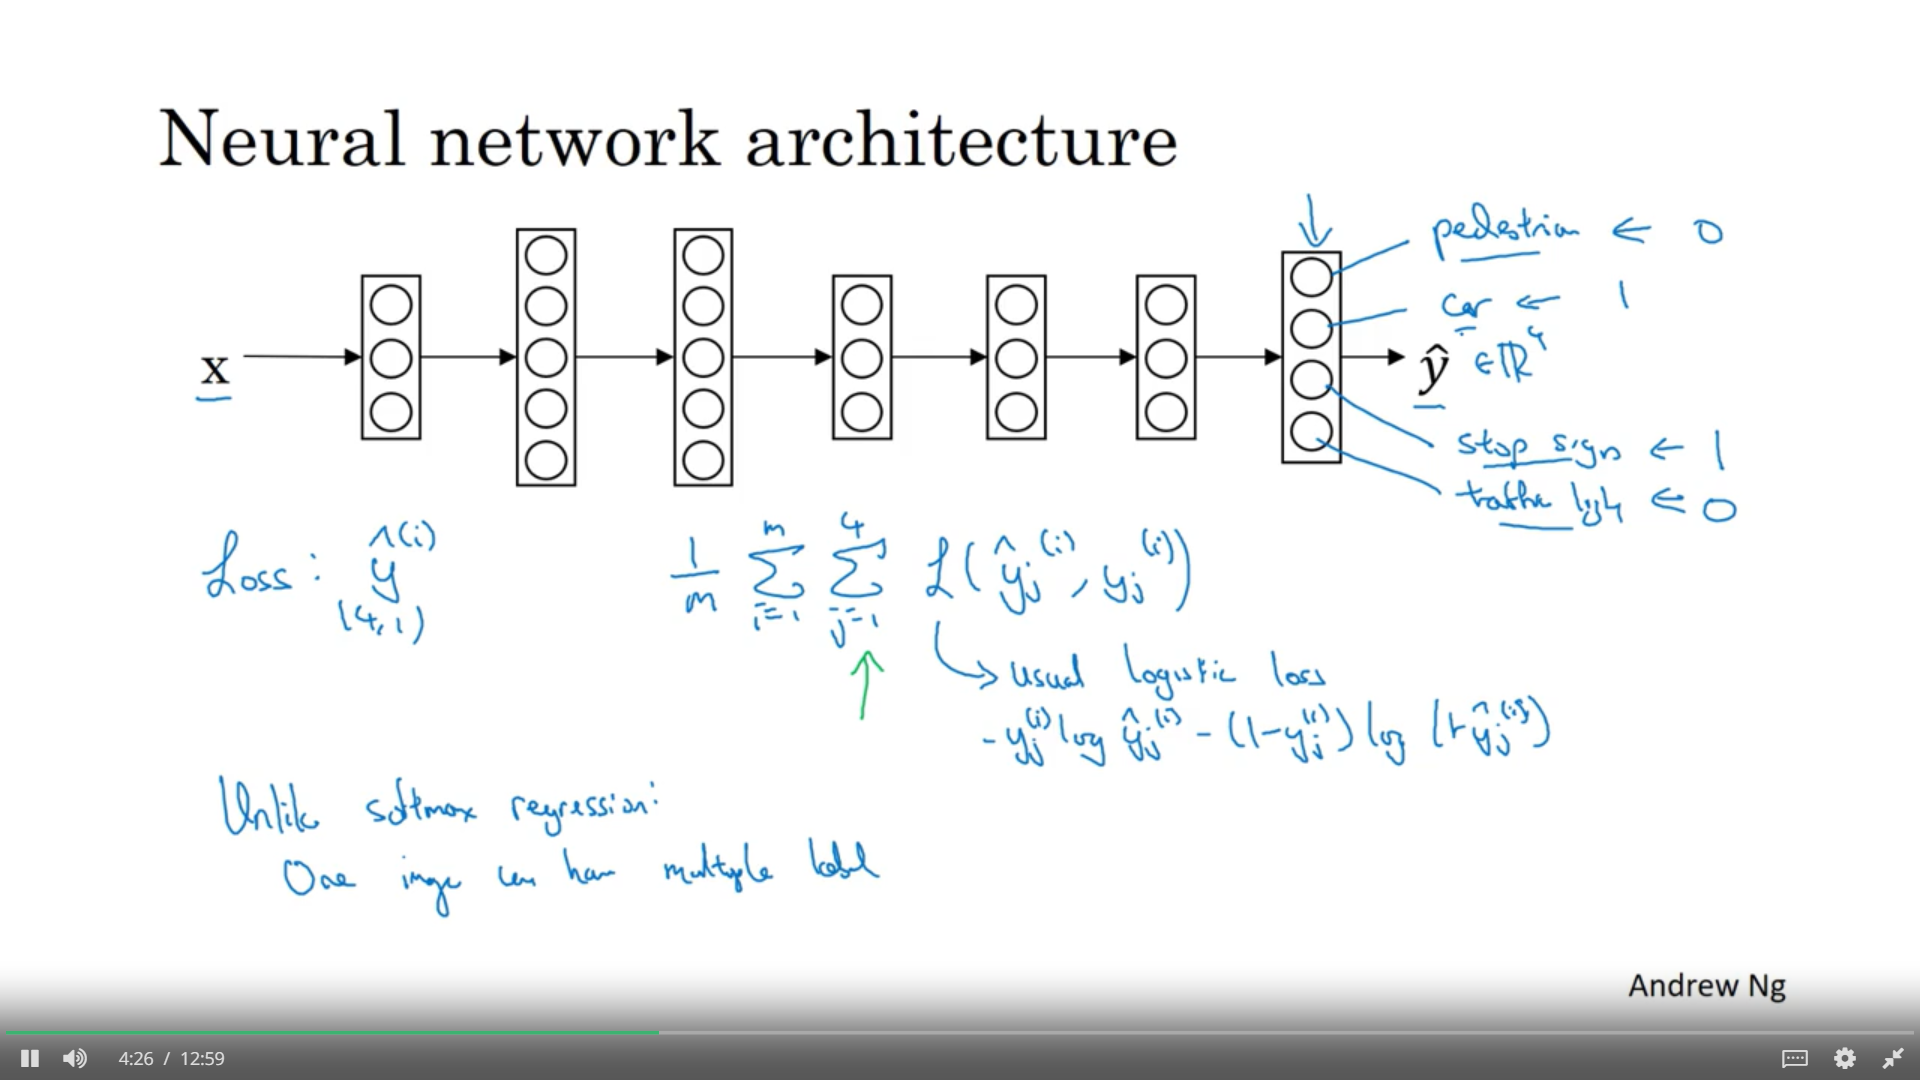 Neural network architecture
pedestrian ← 0
car ← 1
x
ŷ ∈ ℝ⁴
stop sign ← 1
traffic light ← 0
Loss: ŷ^(i)
(4,1)
1/m ∑_{i=1}^{m} ∑_{j=1}^{4} ℒ(ŷ_j^(i), y_j^(i))
→ usual logistic loss
- y_j^(i) log ŷ_j^(i) - (1-y_j^(i)) log (1-ŷ_j^(i))
Unlike softmax regression:
One image can have multiple label
Andrew Ng
4:26 / 12:59